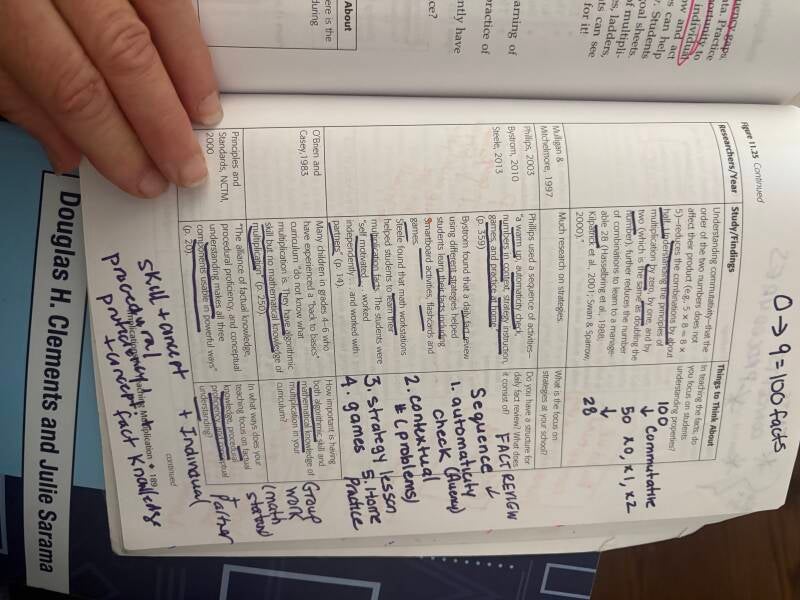 uency gaps.
ata. Practice
ortunity to
individual
ow and act
es can help
y. Students
goal sheets.
of multipli-
es, ladders,
ts can see
for it!
arning of
practice of
ntly have
ce?
About
ere is the
during
0 → 9 = 100 facts
Figure 11.25 Continued
Researchers/Year
Study/Findings
Things to Think About
Understanding commutativity—that the
order of the two numbers does not
affect their product (e.g., 5 × 8 = 8 ×
5)—reduces the combinations by about
half. Understanding the principles of
multiplication by zero, by one, and by
two (which is the same as doubling the
number), further reduces the number
of combinations to learn to a manage-
able 28 (Hasselbring et al., 1988;
Kilpatrick et al., 2001; Swan & Sparrow,
2000)."
In teaching the facts, do
you focus on students
understanding properties?
100
↓ Commutative
50 x0, x1, x2
↓
28
Mulligan &
Mitchelmore, 1997
Much research on strategies.
What is the focus on
strategies at your school?
Phillips, 2003
Bystrom, 2010
Steele, 2013
Phillips used a sequence of activities—
"a warm up, automaticity check,
numbers in context, strategy instruction,
games, and practice at home"
(p. 359).
Bystrom found that a daily fact review
using different strategies helped
students learn their facts including
Smartboard activities, flashcards and
games.
Steele found that math workstations
helped students to learn their
multiplication facts. "The students were
"self motivated" . . . worked
independently . . . and worked with
partners" (p. 14).
Do you have a structure for
daily fact review? What does
it consist of?
FACT REVIEW
Sequence ↓
1. automaticity
check (fluency)
2. contextual
# (problems)
3. strategy lesson
4. games
5. Home
Practice
O'Brien and
Casey, 1983
Many children in grades 4–6 who
have experienced a "back to basics"
curriculum "do not know what
multiplication is. They have algorithmic
skill but no mathematical knowledge of
multiplication" (p. 250).
How important is having
both algorithmic skill and
mathematical knowledge of
multiplication in your
curriculum?
Group
work
(math
station)
Principles and
Standards, NCTM,
2000
"The alliance of factual knowledge,
procedural proficiency, and conceptual
understanding makes all three
components usable in powerful ways"
(p. 20).
In what ways does your
teaching focus on factual
knowledge, procedural
proficiency, and conceptual
understanding?
+ Partner
+ Individual
continued
Multiplication • 189
skill + concept
procedural
+ concept fact knowledge
Douglas H. Clements and Julie Sarama